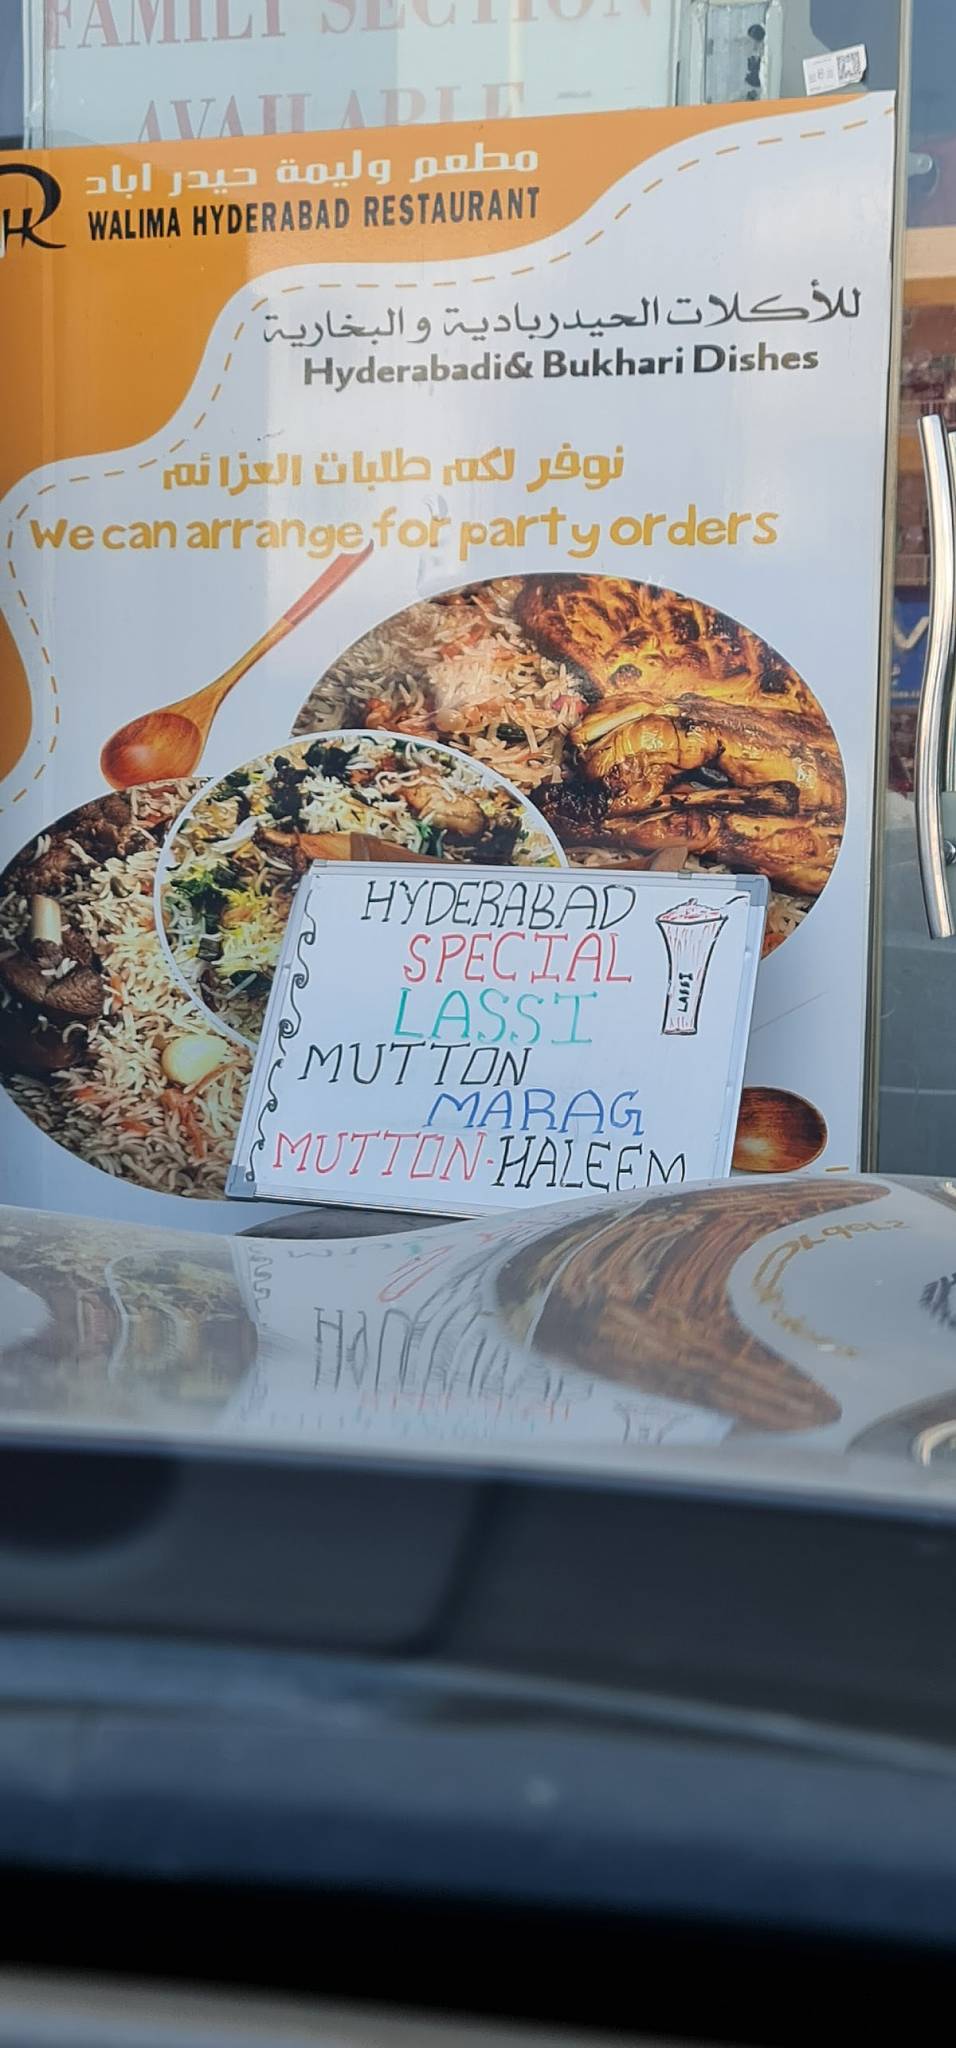 FAMILY SECTION
AVAILABLE
مطعم وليمة حيدر اباد
WALIMA HYDERABAD RESTAURANT
للأكلات الحيدربادية والبخارية
Hyderabadi& Bukhari Dishes
نوفر لكم طلبات العزائم
We can arrange for party orders
HYDERABAD
SPECIAL
LASSI
LASSI
MUTTON
MARAG
MUTTON-HALEEM